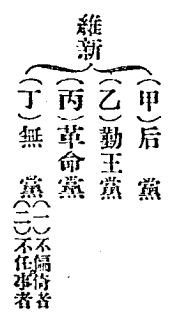 維新
(甲)后黨
(乙)勤王黨
(丙)革命黨
(丁)無黨
(一)不偏倚者
(二)不任事者